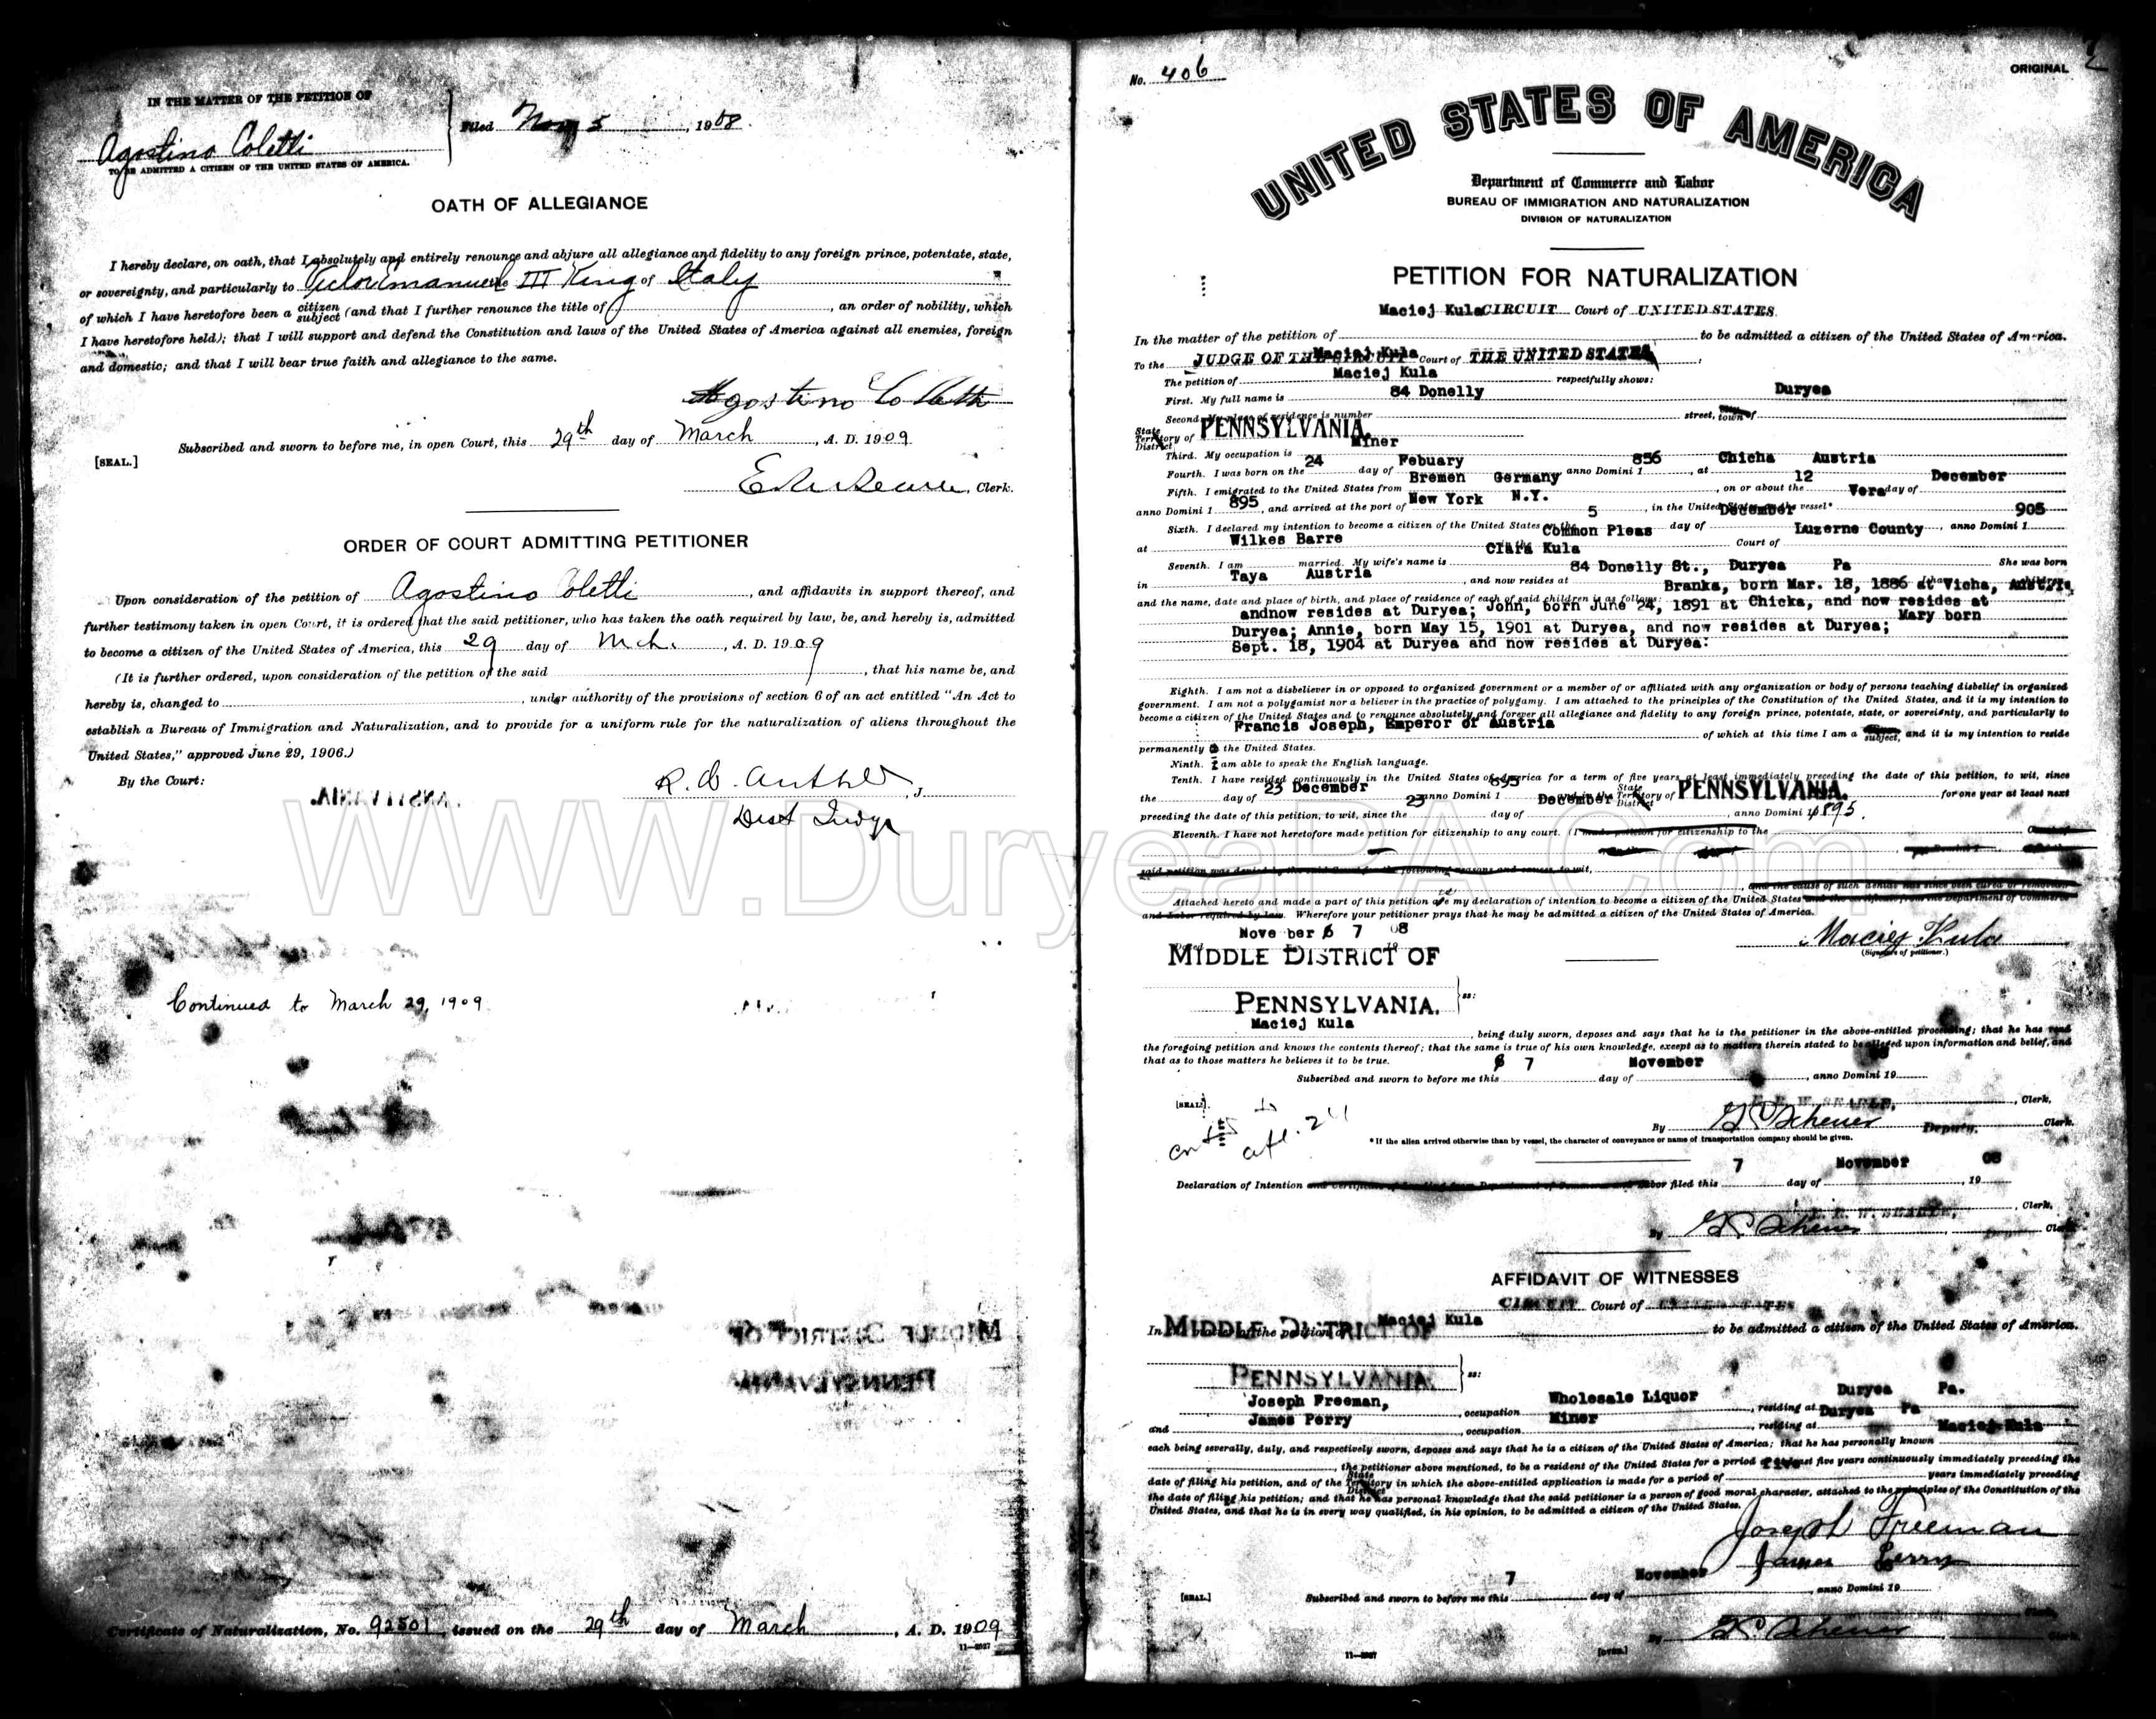 IN THE MATTER OF THE PETITION OF
Agostino Coletti
TO BE ADMITTED A CITIZEN OF THE UNITED STATES OF AMERICA.
Filed Nov 5, 1908.
OATH OF ALLEGIANCE
I hereby declare, on oath, that I absolutely and entirely renounce and abjure all allegiance and fidelity to any foreign prince, potentate, state,
or sovereignty, and particularly to Victor Emanuele III King of Italy
of which I have heretofore been a citizen subject (and that I further renounce the title of , an order of nobility, which
I have heretofore held); that I will support and defend the Constitution and laws of the United States of America against all enemies, foreign
and domestic; and that I will bear true faith and allegiance to the same.
Agostino Coletti
Subscribed and sworn to before me, in open Court, this 29th day of March, A. D. 1909
[SEAL.]
, Clerk.
ORDER OF COURT ADMITTING PETITIONER
Upon consideration of the petition of Agostino Coletti, and affidavits in support thereof, and
further testimony taken in open Court, it is ordered that the said petitioner, who has taken the oath required by law, be, and hereby is, admitted
to become a citizen of the United States of America, this 29 day of Mch., A. D. 1909
(It is further ordered, upon consideration of the petition of the said , that his name be, and
hereby is, changed to , under authority of the provisions of section 6 of an act entitled "An Act to
establish a Bureau of Immigration and Naturalization, and to provide for a uniform rule for the naturalization of aliens throughout the
United States," approved June 29, 1906.)
By the Court:
, J.
Dist Judge
Continued to March 29, 1909
Certificate of Naturalization, No. 92501 issued on the 29th day of March, A. D. 1909
WWW.DuryeaPA.Com
No. 406
ORIGINAL
UNITED STATES OF AMERICA
Department of Commerce and Labor
BUREAU OF IMMIGRATION AND NATURALIZATION
DIVISION OF NATURALIZATION
PETITION FOR NATURALIZATION
Maciej Kula CIRCUIT Court of UNITED STATES.
In the matter of the petition of to be admitted a citizen of the United States of America.
To the JUDGE OF THE CIRCUIT Court of THE UNITED STATES
Maciej Kula
The petition of Maciej Kula respectfully shows:
First. My full name is 84 Donelly Duryea
Second. My place of residence is number street, town of
State Territory District of PENNSYLVANIA.
Third. My occupation is Miner
Fourth. I was born on the 24 day of Febuary anno Domini 1 856, at Chicha Austria
Fifth. I emigrated to the United States from Bremen Germany, on or about the 12 day of December
anno Domini 1 895, and arrived at the port of New York N.Y., in the United States, on the vessel* Vera
Sixth. I declared my intention to become a citizen of the United States on the 5 day of December, anno Domini 1 905
at Wilkes Barre in the Common Pleas Court of Luzerne County
Seventh. I am married. My wife's name is Clara Kula She was born
in Taya Austria, and now resides at 84 Donelly St., Duryea Pa
and the name, date and place of birth, and place of residence of each of said children is as follows: Branka, born Mar. 18, 1886 at Vicha, Austria,
andnow resides at Duryea; John, born June 24, 1891 at Chicka, and now resides at
Duryea; Annie, born May 15, 1901 at Duryea, and now resides at Duryea; Mary born
Sept. 18, 1904 at Duryea and now resides at Duryea:
Eighth. I am not a disbeliever in or opposed to organized government or a member of or affiliated with any organization or body of persons teaching disbelief in organized
government. I am not a polygamist nor a believer in the practice of polygamy. I am attached to the principles of the Constitution of the United States, and it is my intention to
become a citizen of the United States and to renounce absolutely and forever all allegiance and fidelity to any foreign prince, potentate, state, or sovereignty, and particularly to
Francis Joseph, Emperor of Austria of which at this time I am a subject, and it is my intention to reside
permanently in the United States.
Ninth. I am able to speak the English language.
Tenth. I have resided continuously in the United States of America for a term of five years at least immediately preceding the date of this petition, to wit, since
the 23 day of December anno Domini 1 895 and in the State Territory District of PENNSYLVANIA. for one year at least next
preceding the date of this petition, to wit, since the 23 day of December anno Domini 1895.
Eleventh. I have not heretofore made petition for citizenship to any court. (I made petition for citizenship to the
said petition was denied by the said Court for the following reasons and causes, to wit,
, and the cause of such denial has since been cured or removed.
Attached hereto and made a part of this petition are my declaration of intention to become a citizen of the United States and the certificate from the Department of Commerce
and Labor required by law. Wherefore your petitioner prays that he may be admitted a citizen of the United States of America.
Dated Nove ber 6 7 1908
Maciej Kula
(Signature of petitioner.)
MIDDLE DISTRICT OF
PENNSYLVANIA. ss:
Maciej Kula, being duly sworn, deposes and says that he is the petitioner in the above-entitled proceeding; that he has read
the foregoing petition and knows the contents thereof; that the same is true of his own knowledge, except as to matters therein stated to be alleged upon information and belief, and
that as to those matters he believes it to be true.
Subscribed and sworn to before me this 6 7 day of November, anno Domini 19 08
[SEAL].
E. R. W. SEARLE, Clerk.
By Deputy. Clerk.
* If the alien arrived otherwise than by vessel, the character of conveyance or name of transportation company should be given.
Declaration of Intention and Certificate of Landing from Department of Commerce and Labor filed this 7 day of November, 19 08
E. R. W. SEARLE, Clerk.
By , Clerk.
AFFIDAVIT OF WITNESSES
CIRCUIT Court of UNITED STATES
In the matter of the petition of Maciej Kula to be admitted a citizen of the United States of America.
MIDDLE DISTRICT OF
PENNSYLVANIA. ss:
Joseph Freeman, occupation Wholesale Liquor, residing at Duryea Pa.
and James Perry, occupation Miner, residing at Duryea Pa
each being severally, duly, and respectively sworn, deposes and says that he is a citizen of the United States of America; that he has personally known Maciej Kula
, the petitioner above mentioned, to be a resident of the United States for a period of at least five years continuously immediately preceding the
date of filing his petition, and of the State Territory District in which the above-entitled application is made for a period of five years immediately preceding
the date of filing his petition; and that he has personal knowledge that the said petitioner is a person of good moral character, attached to the principles of the Constitution of the
United States, and that he is in every way qualified, in his opinion, to be admitted a citizen of the United States.
Joseph Freeman
James Perry
[SEAL.]
Subscribed and sworn to before me this 7 day of November, anno Domini 19 08
By Clerk.
[OVER.]